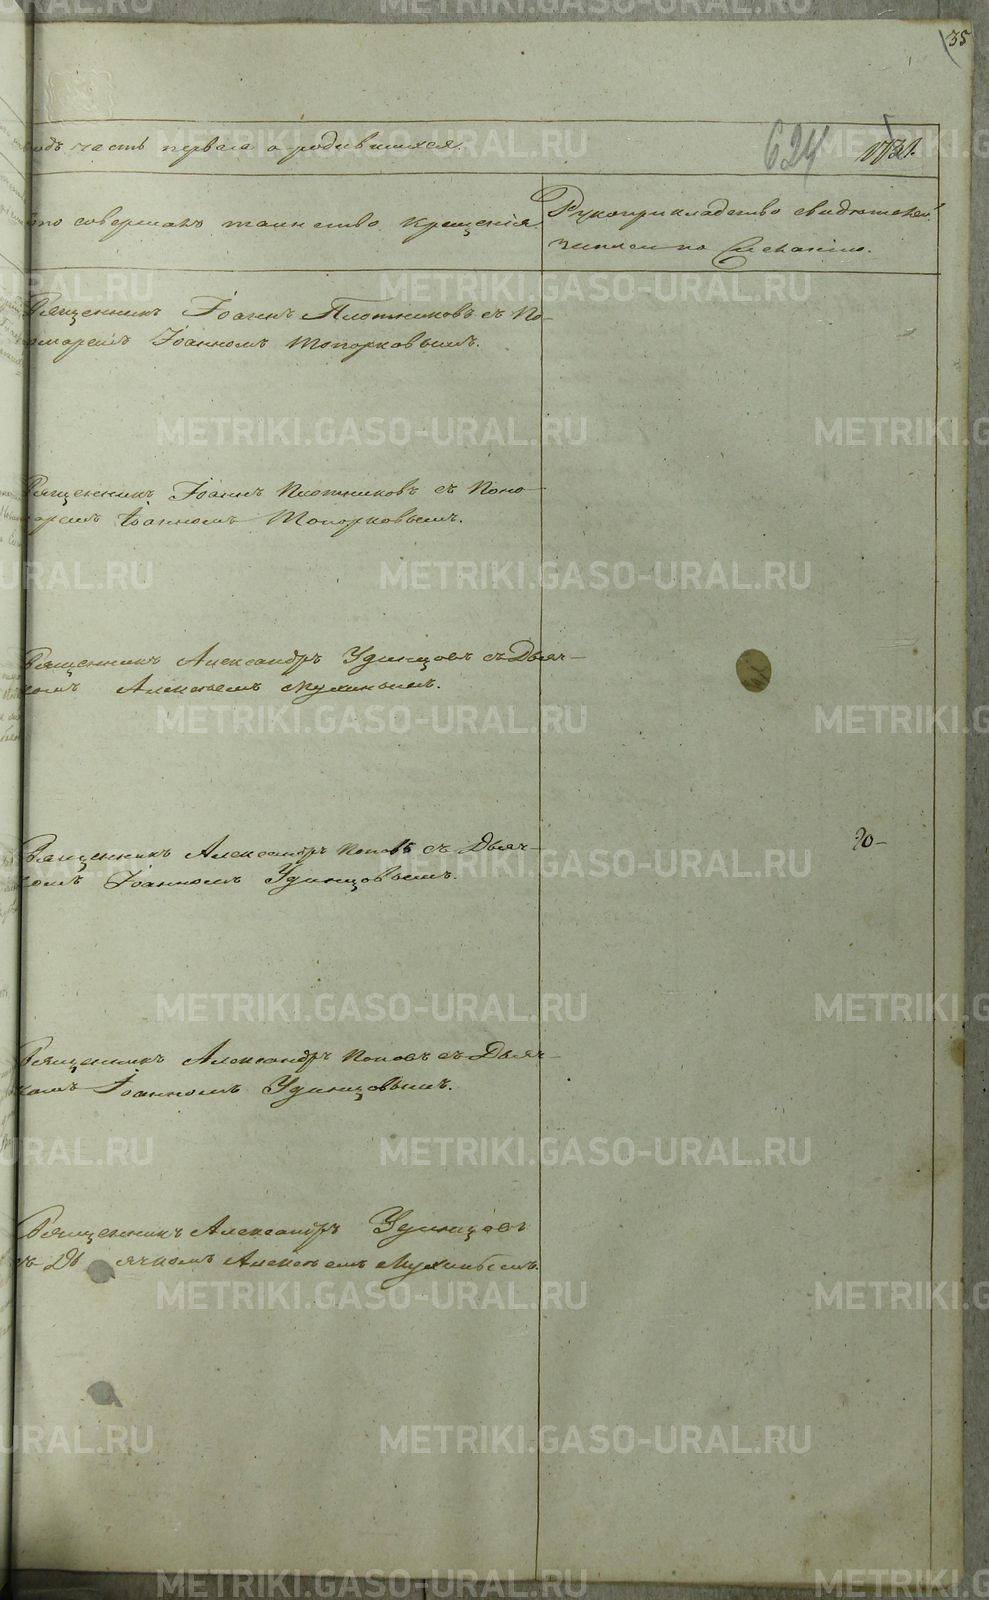 35
годъ часть первая о родившихся.
624
Кто совершалъ таинство крещенія.
Рукоприкладство свидѣтелей
записи по желанію.
Священникъ Іоаннъ Плотниковъ съ По-
номаремъ Іоанномъ Топорковымъ.
Священникъ Іоаннъ Плотниковъ съ Поно-
маремъ Іоанномъ Топорковымъ.
Священникъ Александръ Удинцовъ съ Дьяч-
комъ Алексѣемъ Мухинымъ.
Священникъ Александръ Поповъ съ Дьяч-
комъ Іоанномъ Удинцовымъ.
Священникъ Александръ Поповъ съ Дьяч-
комъ Іоанномъ Удинцовымъ.
Священникъ Александръ Удинцовъ
съ Дьячкомъ Алексѣемъ Мухинымъ.
METRIKI.GASO-URAL.RU